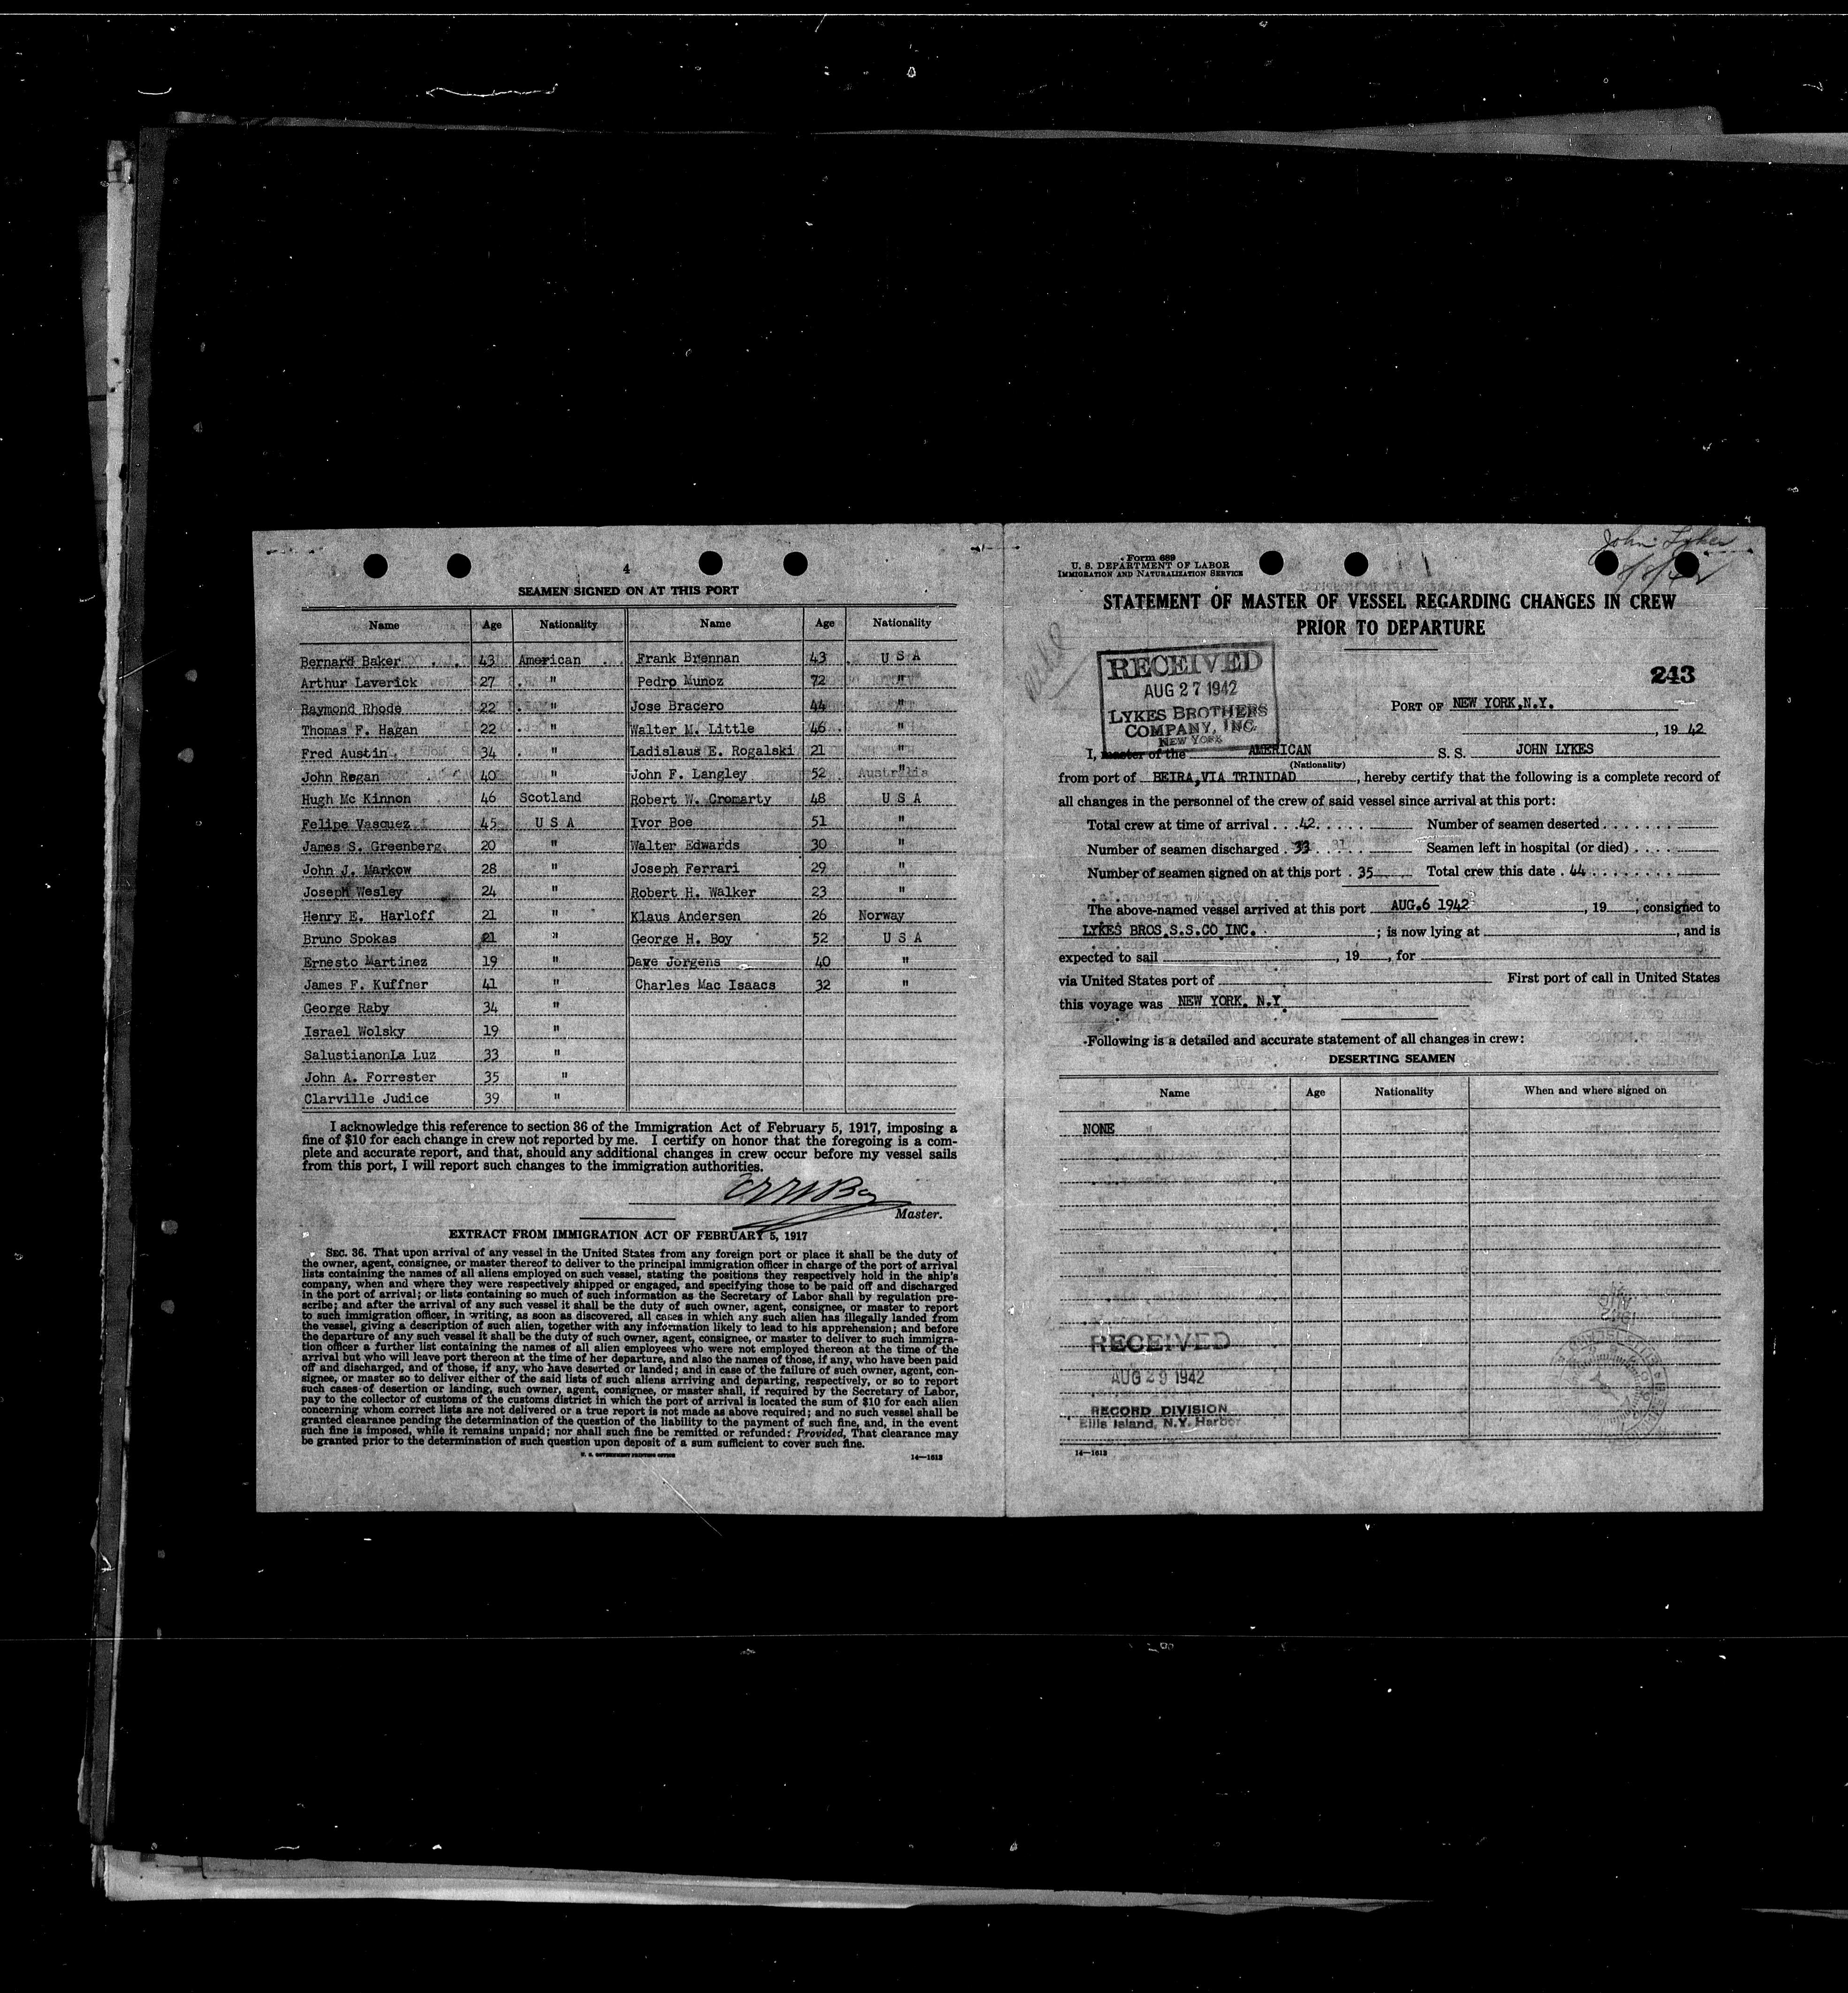 4
SEAMEN SIGNED ON AT THIS PORT
Name Age Nationality Name Age Nationality
Bernard Baker 43 American Frank Brennan 43 U S A
Arthur Laverick 27 " Pedro Munoz 72 "
Raymond Rhode 22 " Jose Bracero 44 "
Thomas F. Hagan 22 " Walter M. Little 46 "
Fred Austin 34 " Ladislaus E. Rogalski 21 "
John Regan 40 " John F. Langley 52 Australia "
Hugh Mc Kinnon 46 Scotland Robert W. Cromarty 48 U S A
Felipe Vasquez 45 U S A Ivor Boe 51 "
James S. Greenberg 20 " Walter Edwards 30 "
John J. Markow 28 " Joseph Ferrari 29 "
Joseph Wesley 24 " Robert H. Walker 23 "
Henry E. Harloff 21 " Klaus Andersen 26 Norway
Bruno Spokas 21 " George H. Boy 52 U S A
Ernesto Martinez 19 " Dave Jorgens 40 "
James F. Kuffner 41 " Charles Mac Isaacs 32 "
George Raby 34 "
Israel Wolsky 19 "
SalustianonLa Luz 33 "
John A. Forrester 35 "
Clarville Judice 39 "
I acknowledge this reference to section 36 of the Immigration Act of February 5, 1917, imposing a
fine of $10 for each change in crew not reported by me. I certify on honor that the foregoing is a com-
plete and accurate report, and that, should any additional changes in crew occur before my vessel sails
from this port, I will report such changes to the immigration authorities.
Master.
EXTRACT FROM IMMIGRATION ACT OF FEBRUARY 5, 1917
SEC. 36. That upon arrival of any vessel in the United States from any foreign port or place it shall be the duty of
the owner, agent, consignee, or master thereof to deliver to the principal immigration officer in charge of the port of arrival
lists containing the names of all aliens employed on such vessel, stating the positions they respectively hold in the ship's
company, when and where they were respectively shipped or engaged, and specifying those to be paid off and discharged
in the port of arrival; or lists containing so much of such information as the Secretary of Labor shall by regulation pre-
scribe; and after the arrival of any such vessel it shall be the duty of such owner, agent, consignee, or master to report
to such immigration officer, in writing, as soon as discovered, all cases in which any such alien has illegally landed from
the vessel, giving a description of such alien, together with any information likely to lead to his apprehension; and before
the departure of any such vessel it shall be the duty of such owner, agent, consignee, or master to deliver to such immigra-
tion officer a further list containing the names of all alien employees who were not employed thereon at the time of the
arrival but who will leave port thereon at the time of her departure, and also the names of those, if any, who have been paid
off and discharged, and of those, if any, who have deserted or landed; and in case of the failure of such owner, agent, con-
signee, or master so to deliver either of the said lists of such aliens arriving and departing, respectively, or so to report
such cases of desertion or landing, such owner, agent, consignee, or master shall, if required by the Secretary of Labor,
pay to the collector of customs of the customs district in which the port of arrival is located the sum of $10 for each alien
concerning whom correct lists are not delivered or a true report is not made as above required; and no such vessel shall be
granted clearance pending the determination of the question of the liability to the payment of such fine, and, in the event
such fine is imposed, while it remains unpaid; nor shall such fine be remitted or refunded: Provided, That clearance may
be granted prior to the determination of such question upon deposit of a sum sufficient to cover such fine.
U. S. GOVERNMENT PRINTING OFFICE 14—1613
John Lykes
Form 689
U. S. DEPARTMENT OF LABOR
IMMIGRATION AND NATURALIZATION SERVICE
STATEMENT OF MASTER OF VESSEL REGARDING CHANGES IN CREW
PRIOR TO DEPARTURE
RECEIVED
AUG 27 1942
LYKES BROTHERS
COMPANY, INC.
NEW YORK
243
PORT OF NEW YORK,N.Y.
, 19 42
I, master of the AMERICAN S. S. JOHN LYKES
(Nationality)
from port of BEIRA,VIA TRINIDAD, hereby certify that the following is a complete record of
all changes in the personnel of the crew of said vessel since arrival at this port:
Total crew at time of arrival 42 Number of seamen deserted
Number of seamen discharged 33 31 Seamen left in hospital (or died)
Number of seamen signed on at this port 35 Total crew this date 44
The above-named vessel arrived at this port AUG.6 1942, 19 ; consigned to
LYKES BROS.S.S.CO INC. ; is now lying at , and is
expected to sail , 19 , for
via United States port of First port of call in United States
this voyage was NEW YORK. N.Y.
Following is a detailed and accurate statement of all changes in crew:
DESERTING SEAMEN
Name Age Nationality When and where signed on
NONE
RECEIVED
AUG 29 1942
RECORD DIVISION
Ellis Island, N.Y. Harbor
14—1613